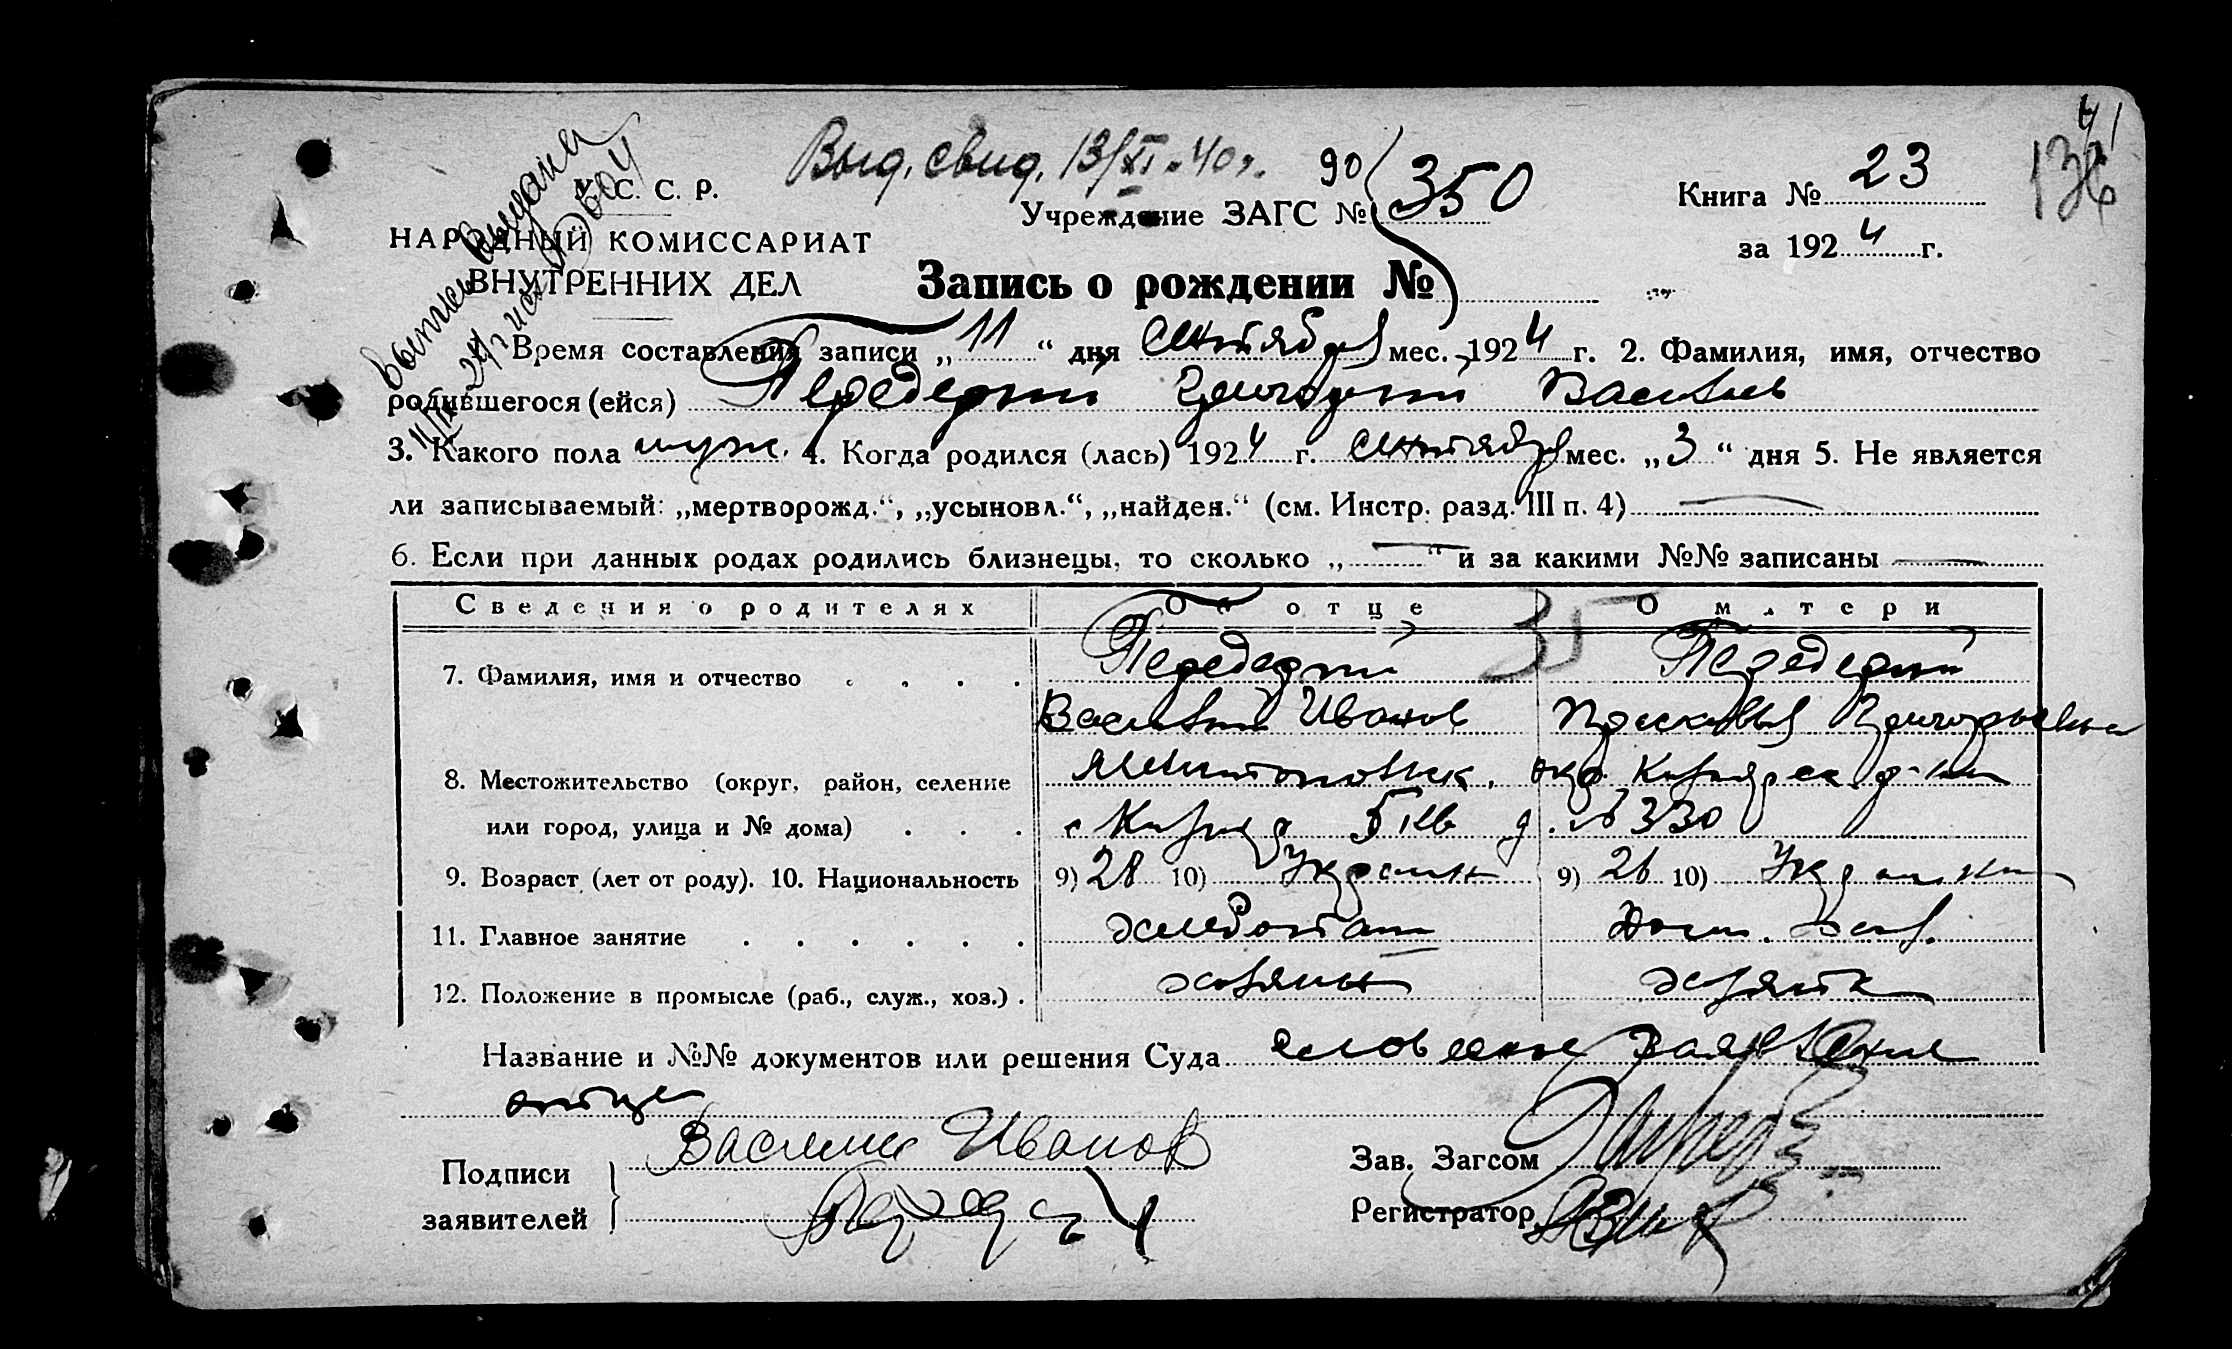 Выд. свид. 13/XI-40г.
выпись выдана
У. С. С. Р.
НАРОДНЫЙ КОМИССАРИАТ
ВНУТРЕННИХ ДЕЛ
90
Учреждение ЗАГС № 350
Книга № 23
за 1924 г.
136
Запись о рождении №
Время составления записи „11“ дня сентября мес. 1924 г. 2. Фамилия, имя, отчество
родившегося (ейся) Передерий Григорий Васильев
3. Какого пола муж. 4. Когда родился (лась) 1924 г. сентября мес. „3“ дня 5. Не является
ли записываемый: „мертворожд.“, „усыновл.“, „найден.“ (см. Инстр. разд. III п. 4) —
6. Если при данных родах родились близнецы, то сколько „—“ и за какими №№ записаны —
Сведения о родителях Об отце 35 О матери
7. Фамилия, имя и отчество . . . . Передерий Передерий
Василий Иванов Прасковья Григорьевна
8. Местожительство (округ, район, селение Мелитопольск. окр. Кизиярск. р-на
или город, улица и № дома) . . . с Кизияр 5 кв д. № 330
9. Возраст (лет от роду). 10. Национальность 9) 28 10) Украин 9) 26 10) Украинка
11. Главное занятие . . . . . . хлебопаш Дом. хоз.
12. Положение в промысле (раб., служ., хоз.) . хозяин хозяйка
Название и №№ документов или решения Суда словесное заявление
отца
Подписи Василий Иванов
заявителей
Зав. Загсом
Регистратор